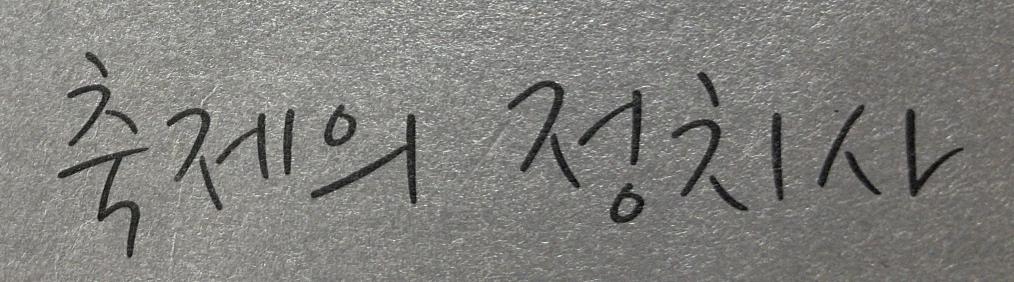 축제의 정치사